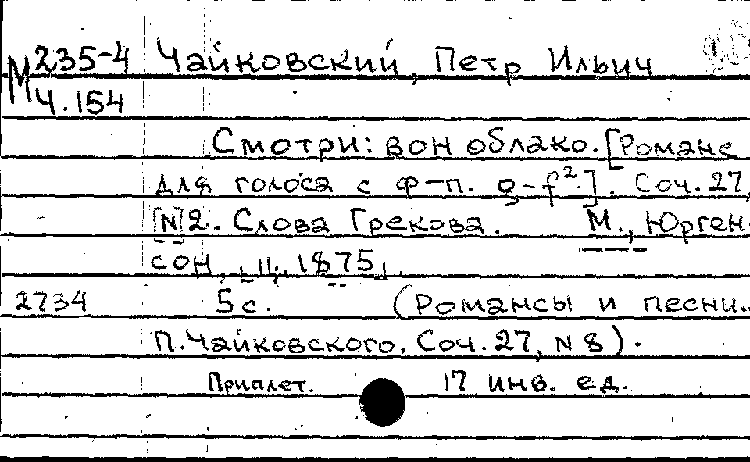 М 235-4 Чайковский, Петр Ильич
Ч.154
Смотри: вон облако. [Романс
для голоса с ф-п. g-f². ]. Соч. 27,
[N] 2. Слова Грекова. М., Юрген-
сон, 1875,
2734 5 с. (Романсы и песни..
П. Чайковского. Соч. 27, N 8).
Приплет. 17 инв. ед.